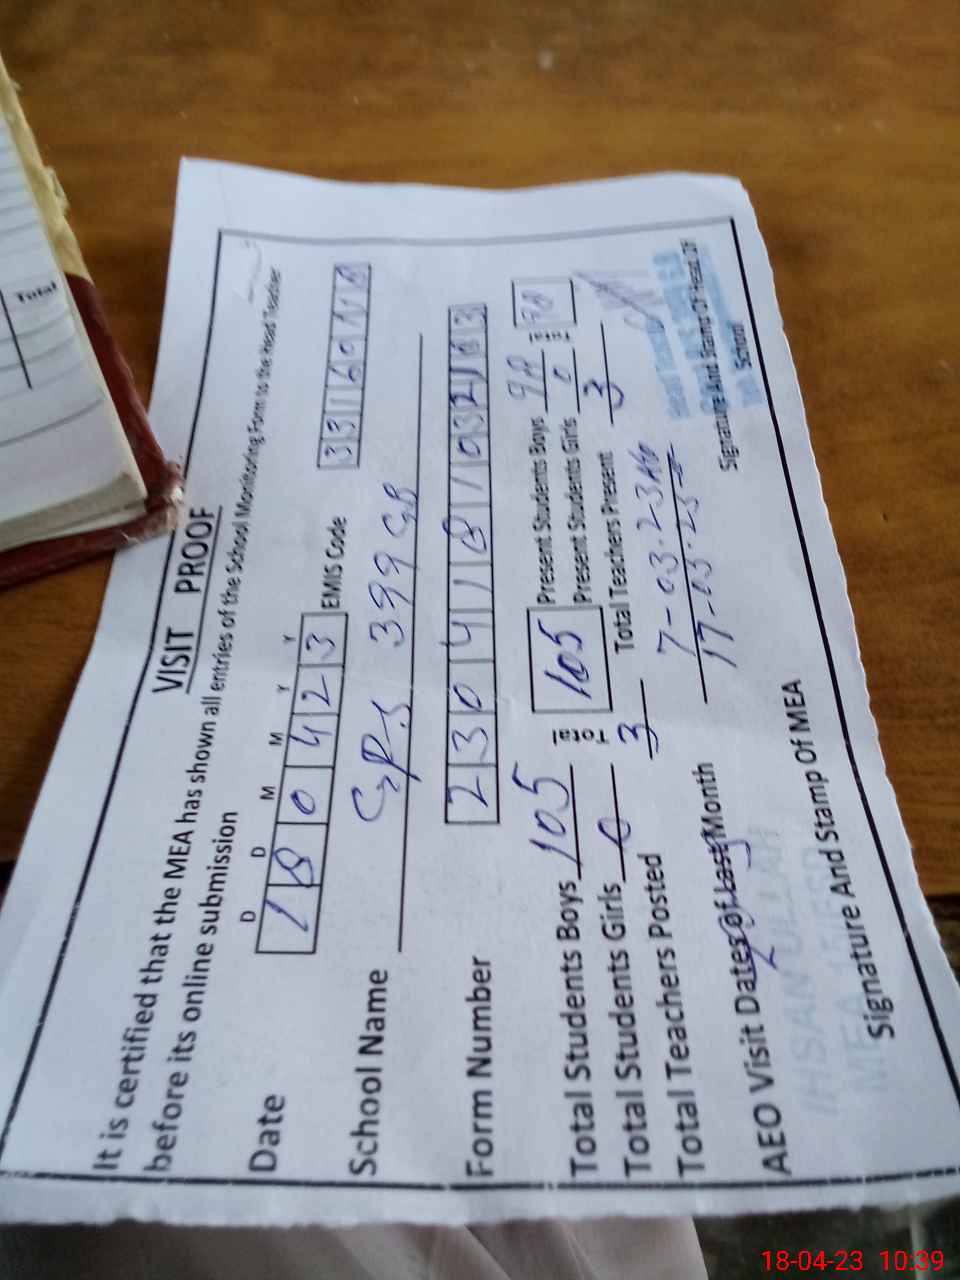 VISIT PROOF
It is certified that the MEA has shown all entries of the School Monitoring Form to the Head Teacher
before its online submission
D D M M Y Y
Date 180423 EMIS Code 33160
School Name GPS 399 GB
Form Number 2304181032
Total Students Boys 105 Total 105 Present Students Boys
Total Students Girls 0 Present Students Girls 0
Total Teachers Posted 3 Total Teachers Present 3
AEO Visit Dates Of Last Month 7-03-23
17-03-23
Signature And Stamp Of MEA Signature And Stamp Of Head Of
School
IHSAN ULLAH
MEA
Total
18-04-23 10:39